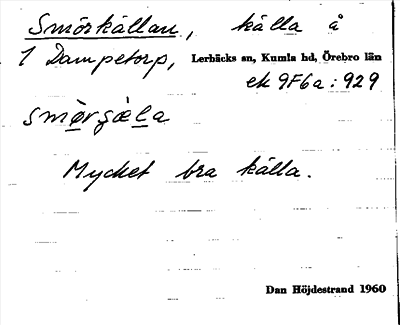 Smörkällan, källa å
1 Dampetorp, Lerbäcks sn, Kumla hd, Örebro län
ek 9F6a:929
smö̀rṣ̌èla
Mycket bra källa.
Dan Höjdestrand 1960